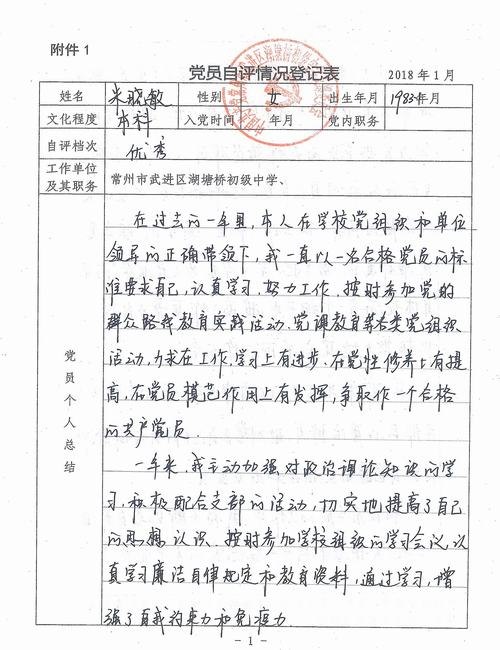 附件1
党员自评情况登记表
2018年1月
姓名 米晓敏 性别 女 出生年月 1983年月
文化程度 本科 入党时间 年月 党内职务
自评档次 优秀
工作单位及其职务 常州市武进区湖塘桥初级中学、
党员个人总结
在过去的一年里,本人在学校党组织和单位
领导的正确带领下,我一直以一名合格党员的标
准要求自己,认真学习,努力工作,按时参加党的
群众路线教育实践活动、党课教育等各类党组织
活动,力求在工作,学习上有进步,在党性修养上有提
高,在党员模范作用上有发挥,争取作一个合格
的共产党员.
一年来,我主动加强对政治理论知识的学
习,积极配合支部的活动,切实地提高了自己
的思想认识、按时参加学校组织的学习会议,认
真学习廉洁自律规定和教育资料,通过学习,增
强了自我约束力和免疫力.
- 1 -